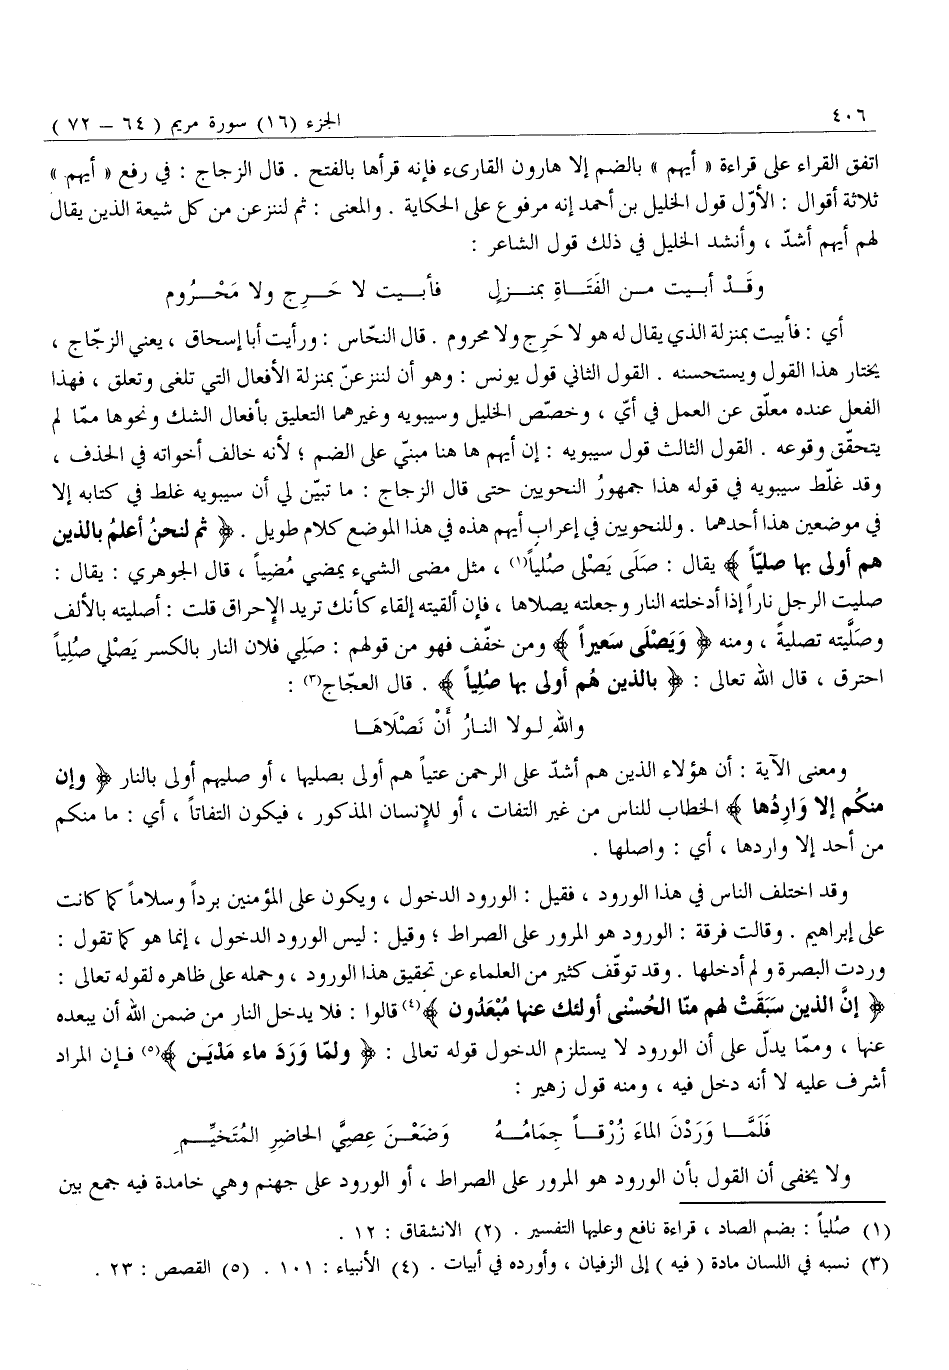 ٤٠٦ الجزء (١٦) سورة مريم ( ٦٤ – ٧٢ )
اتفق القراء على قراءة « أيهم » بالضم إلا هارون القارىء فإنه قرأها بالفتح . قال الزجاج : في رفع « أيهم »
ثلاثة أقوال : الأوّل قول الخليل بن أحمد إنه مرفوع على الحكاية . والمعنى : ثم لننزعن من كل شيعة الذين يقال
لهم أيهم أشدّ ، وأنشد الخليل في ذلك قول الشاعر :
وقَـدْ أبـيت مـن الفَتَـاةِ بمنـزلٍ فأبـيت لا حَـرِج ولا مَحْـرُوم
أي : فأبيت بمنزلة الذي يقال له هو لا حَرِج ولا محروم . قال النحّاس : ورأيت أبا إسحاق ، يعني الزجّاج ،
يختار هذا القول ويستحسنه . القول الثاني قول يونس : وهو أن لننزعنّ بمنزلة الأفعال التي تلغى وتعلق ، فهذا
الفعل عنده معلّق عن العمل في أيّ ، وخصّص الخليل وسيبويه وغيرهما التعليق بأفعال الشك ونحوها ممّا لم
يتحقّق وقوعه . القول الثالث قول سيبويه : إن أيهم ها هنا مبنيّ على الضم ؛ لأنه خالف أخواته في الحذف ،
وقد غلّط سيبويه في قوله هذا جمهورُ النحويين حتى قال الزجاج : ما تبيّن لي أن سيبويه غلط في كتابه إلا
في موضعين هذا أحدهما . وللنحويين في إعراب أيهم هذه في هذا الموضع كلام طويل . ﴿ ثم لنحنُ أعلمُ بالذين
هم أولى بها صليّاً ﴾ يقال : صَلَى يَصْلى صُلياً(١) ، مثل مضى الشيء يمضي مُضِياً ، قال الجوهري : يقال :
صليت الرجل ناراً إذا أدخلته النار وجعلته يصلاها ، فإن ألقيته إلقاء كأنك تريد الإحراق قلت : أصليته بالألف
وصَلَّيته تصليةً ، ومنه ﴿ وَيَصْلَى سَعيراً ﴾ ومن خفّف فهو من قولهم : صَلِي فلان النار بالكسر يَصْلي صُلِياً
احترق ، قال الله تعالى : ﴿ بالذين هُم أولى بها صُلِياً ﴾ . قال العجّاج(٣) :
واللهِ لـولا النـارُ أَنْ نَصْلَاهَـا
ومعنى الآية : أن هؤلاء الذين هم أشدّ على الرحمن عتياً هم أولى بصليها ، أو صليهم أولى بالنار ﴿ وإن
منكُم إلا وَارِدُها ﴾ الخطاب للناس من غير التفات ، أو للإنسان المذكور ، فيكون التفاتاً ، أي : ما منكم
من أحد إلا واردها ، أي : واصلها .
وقد اختلف الناس في هذا الورود ، فقيل : الورود الدخول ، ويكون على المؤمنين برداً وسلاماً كما كانت
على إبراهيم . وقالت فرقة : الورود هو المرور على الصراط ؛ وقيل : ليس الورود الدخول ، إنما هو كما تقول :
وردت البصرة و لم أدخلها . وقد توقّف كثير من العلماء عن تحقيق هذا الورود ، وحمله على ظاهره لقوله تعالى :
﴿ إنَّ الذين سَبَقَتْ لهم منّا الحُسْنى أولئك عنها مُبْعَدُون ﴾(٤) قالوا : فلا يدخل النار من ضمن الله أن يبعده
عنها ، وممّا يدلّ على أن الورود لا يستلزم الدخول قوله تعالى : ﴿ ولمّا وَرَدَ ماء مَدْيَـن ﴾(٥) فـإن المراد
أشرف عليه لا أنه دخل فيه ، ومنه قول زهير :
فَلَمَّـا وَرَدْنَ الماءَ زُرْقـاً جِمَامُـهُ وَضَعْـنَ عِصِيَّ الحاضِرِ المُتَخيِّـمِ
ولا يخفى أن القول بأن الورود هو المرور على الصراط ، أو الورود على جهنم وهي خامدة فيه جمع بين
(١) صُلياً : بضم الصاد ، قراءة نافع وعليها التفسير . (٢) الانشقاق : ١٢ .
(٣) نسبه في اللسان مادة ( فيه ) إلى الزفيان ، وأورده في أبيات . (٤) الأنبياء : ١٠١ . (٥) القصص : ٢٣ .